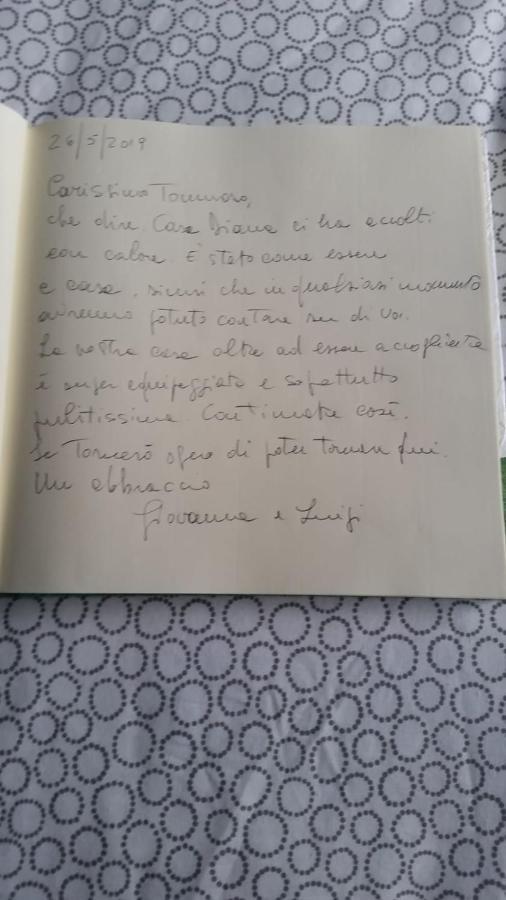 26/5/2019
Carissimo Tommaso,
che dire. Casa Diana ci ha accolti
con calore. È stato come essere
a casa, sicuri che in qualsiasi momento
avremmo potuto contare su di voi.
La vostra casa oltre ad essere accogliente
è super equipaggiata e soprattutto
pulitissima. Continuate così.
Se tornerò spero di poter tornare qui.
Un abbraccio
Giovanna e Luigi